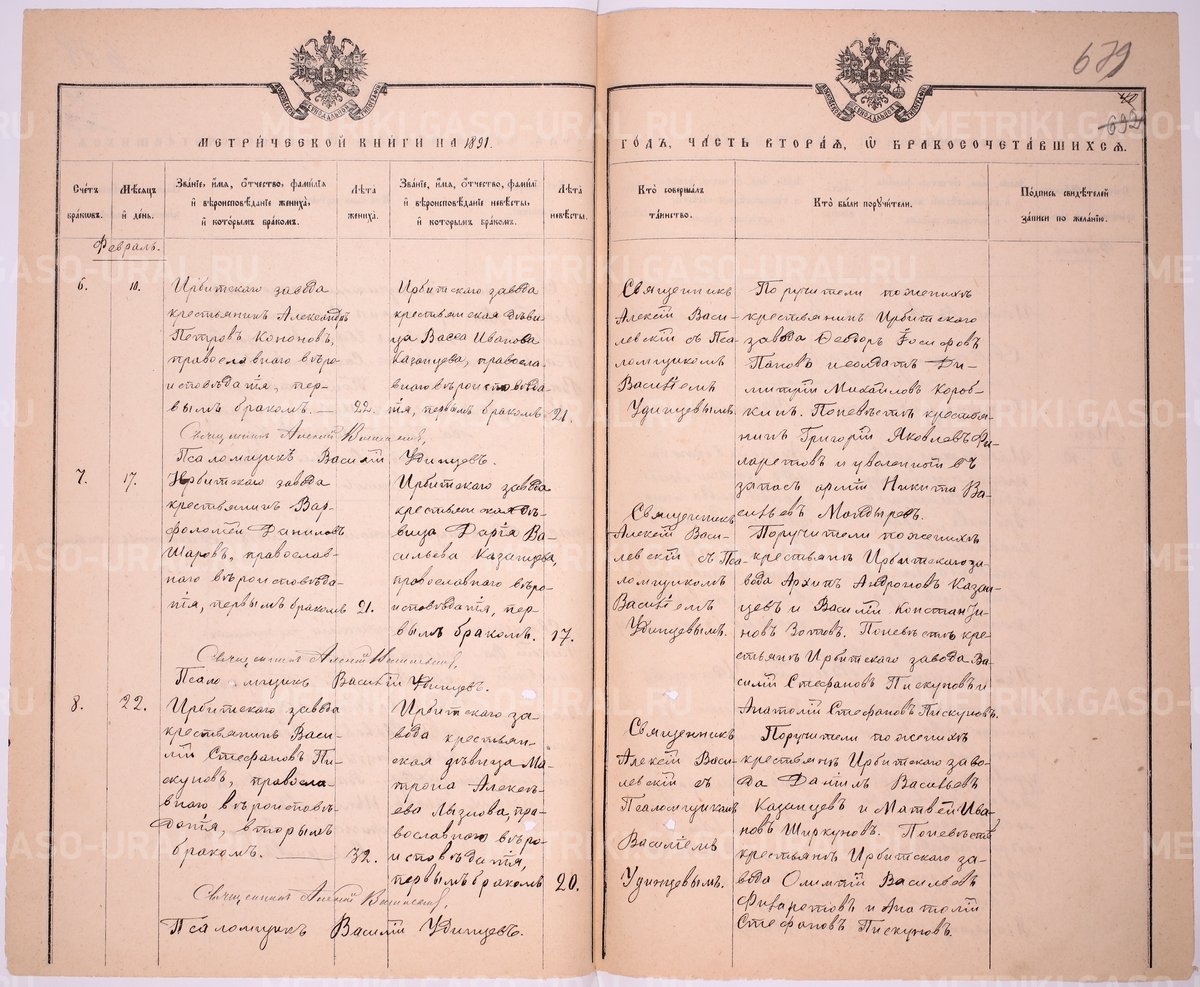 679
40
632
МЕТРИЧЕСКОЙ КНИГИ НА 1891.
ГОДЪ, ЧАСТЬ ВТОРАЯ, Ѿ БРАКОСОЧЕТАВШИХСЯ.
Счетъ браковъ.
Мѣсяцъ и день.
Званіе, имя, отчество, фамилія
и вѣроисповѣданіе жениха,
и которымъ бракомъ.
Лѣта
жениха.
Званіе, имя, отчество, фамилі
и вѣроисповѣданіе невѣсты,
и которымъ бракомъ.
Лѣта
невѣсты.
Кто совершалъ
таинство.
Кто были поручители.
Подпись свидѣтелей
записи по желанію.
Февраль.
6.
10.
Ирбитскаго завода
крестьянинъ Александръ
Петровъ Кононовъ,
православнаго вѣро
исповѣданія, пер-
вымъ бракомъ. —
22.
Ирбитскаго завода
крестьянская дѣви
ца Васса Иванова
Казанцева, правосла
внаго вѣроисповѣда-
нія, первымъ бракомъ
21.
Священникъ
Алексій Васи-
левскій съ Пса
ломщикомъ
Василіемъ
Удинцевымъ.
Поручители по женихѣ
крестьянинъ Ирбитскаго
завода Ѳеодоръ Іосифовъ
Пановъ и солдатъ Ди-
митрій Михайловъ Короб-
кинъ. По невѣстѣ крестья-
нинъ Григорій Яковлевъ Фи-
ларетовъ и уволенный въ
запасъ арміи Никита Ва-
сильевъ Мандыревъ.
Священникъ Алексій Василевскій,
Псаломщикъ Василій Удинцевъ.
7.
17.
Ирбитскаго завода
крестьянинъ Вар-
фоломей Даниловъ
Шаровъ, православ-
наго вѣроисповѣда-
нія, первымъ бракомъ
21.
Ирбитскаго завода
крестьянская дѣ-
вица Дарія Ва-
сильева Казанцева,
православнаго вѣро-
исповѣданія, пер-
вымъ бракомъ.
17.
Священникъ
Алексій Васи-
левскій съ Пса-
ломщикомъ
Василіемъ
Удинцевымъ.
Поручители по женихѣ
крестьянъ Ирбитскаго за-
вода Архипъ Андроновъ Казан-
цевъ и Василій Константи-
новъ Зотовъ. По невѣстѣ кре
стьянъ Ирбитскаго завода Ва-
силій Стефановъ Пискуновъ и
Анатолій Стефановъ Пискуновъ.
Священникъ Алексій Василевскій,
Псаломщикъ Василій Удинцевъ.
8.
22.
Ирбитскаго завода
крестьянинъ Васи-
лій Стефановъ Пи-
скуновъ, правосла-
внаго вѣроисповѣ-
данія, вторымъ
бракомъ. —
32.
Ирбитскаго за-
вода крестьян-
ская дѣвица Ма-
трона Алексѣ-
ева Лызлова, пра-
вославнаго вѣро-
исповѣданія,
первымъ бракомъ
20.
Священникъ
Алексій Васи-
левскій съ
Псаломщикомъ
Василіемъ
Удинцевымъ.
Поручители по женихѣ
крестьянъ Ирбитскаго заво-
да Даніилъ Васильевъ
Казанцевъ и Матвей Ива-
новъ Ширкуновъ. По невѣстѣ
крестьянъ Ирбитскаго за-
вода Олимпій Васильевъ
Филаретовъ и Анатолій
Стефановъ Пискуновъ.
Священникъ Алексій Василевскій,
Псаломщикъ Василій Удинцевъ.
METRIKI.GASO-URAL.RU